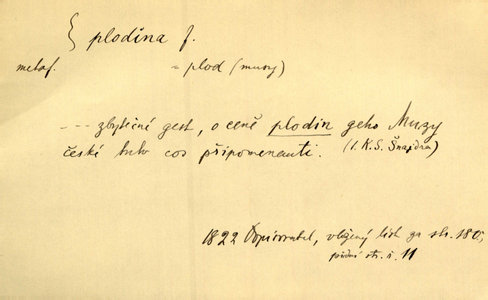 plodina f.
metaf. = plod (musy)
--- zbytečné gest, o ceně plodin geho Muzy
české tuto cos připomenauti. (I. K. S. Šnajdra)
1822 Dopisovatel, vložený list za str. 180,
původ. str. č. 11